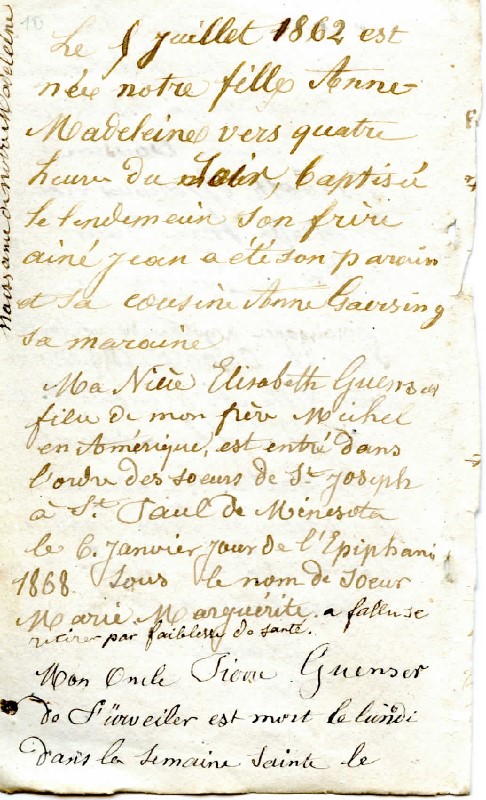 10
Naissance de notre Madeleine
Le 5 juillet 1862 est
née notre fille Anne
Madeleine vers quatre
heure du soir, baptisée
le lendemain son frère
ainé jean a été son parain
et sa cousine Anne
sa maraine
Ma Nièce Elisabeth Guenser
fille de mon frère Michel
en Amérique, est entré dans
l'ordre des soeurs de St Joseph
à St. Paul de Minesota
le 6. Janvier jour de l'Epiphani
1868 sous le nom de Soeur
Marie Marguérite. a fallu se
retirer par faiblesse de santé.
Mon Oncle Pierre Guenser
de Fürweiler est mort le lundi
dans la semaine sainte le